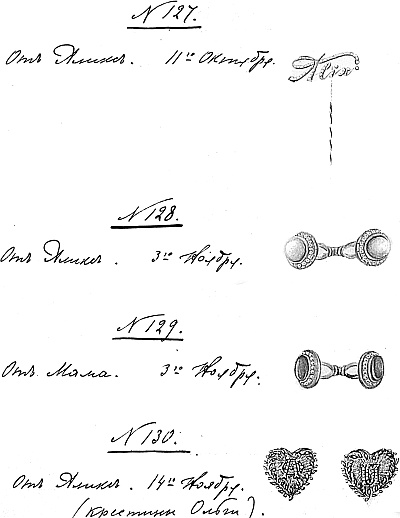 N 127.
Отъ Аликсъ. 11го Октября.
Alix
N 128.
Отъ Аликсъ. 3го Ноября.
N 129.
Отъ Мама. 3го Ноября.
N 130.
Отъ Аликсъ. 14го Ноября.
(крестины Ольги).